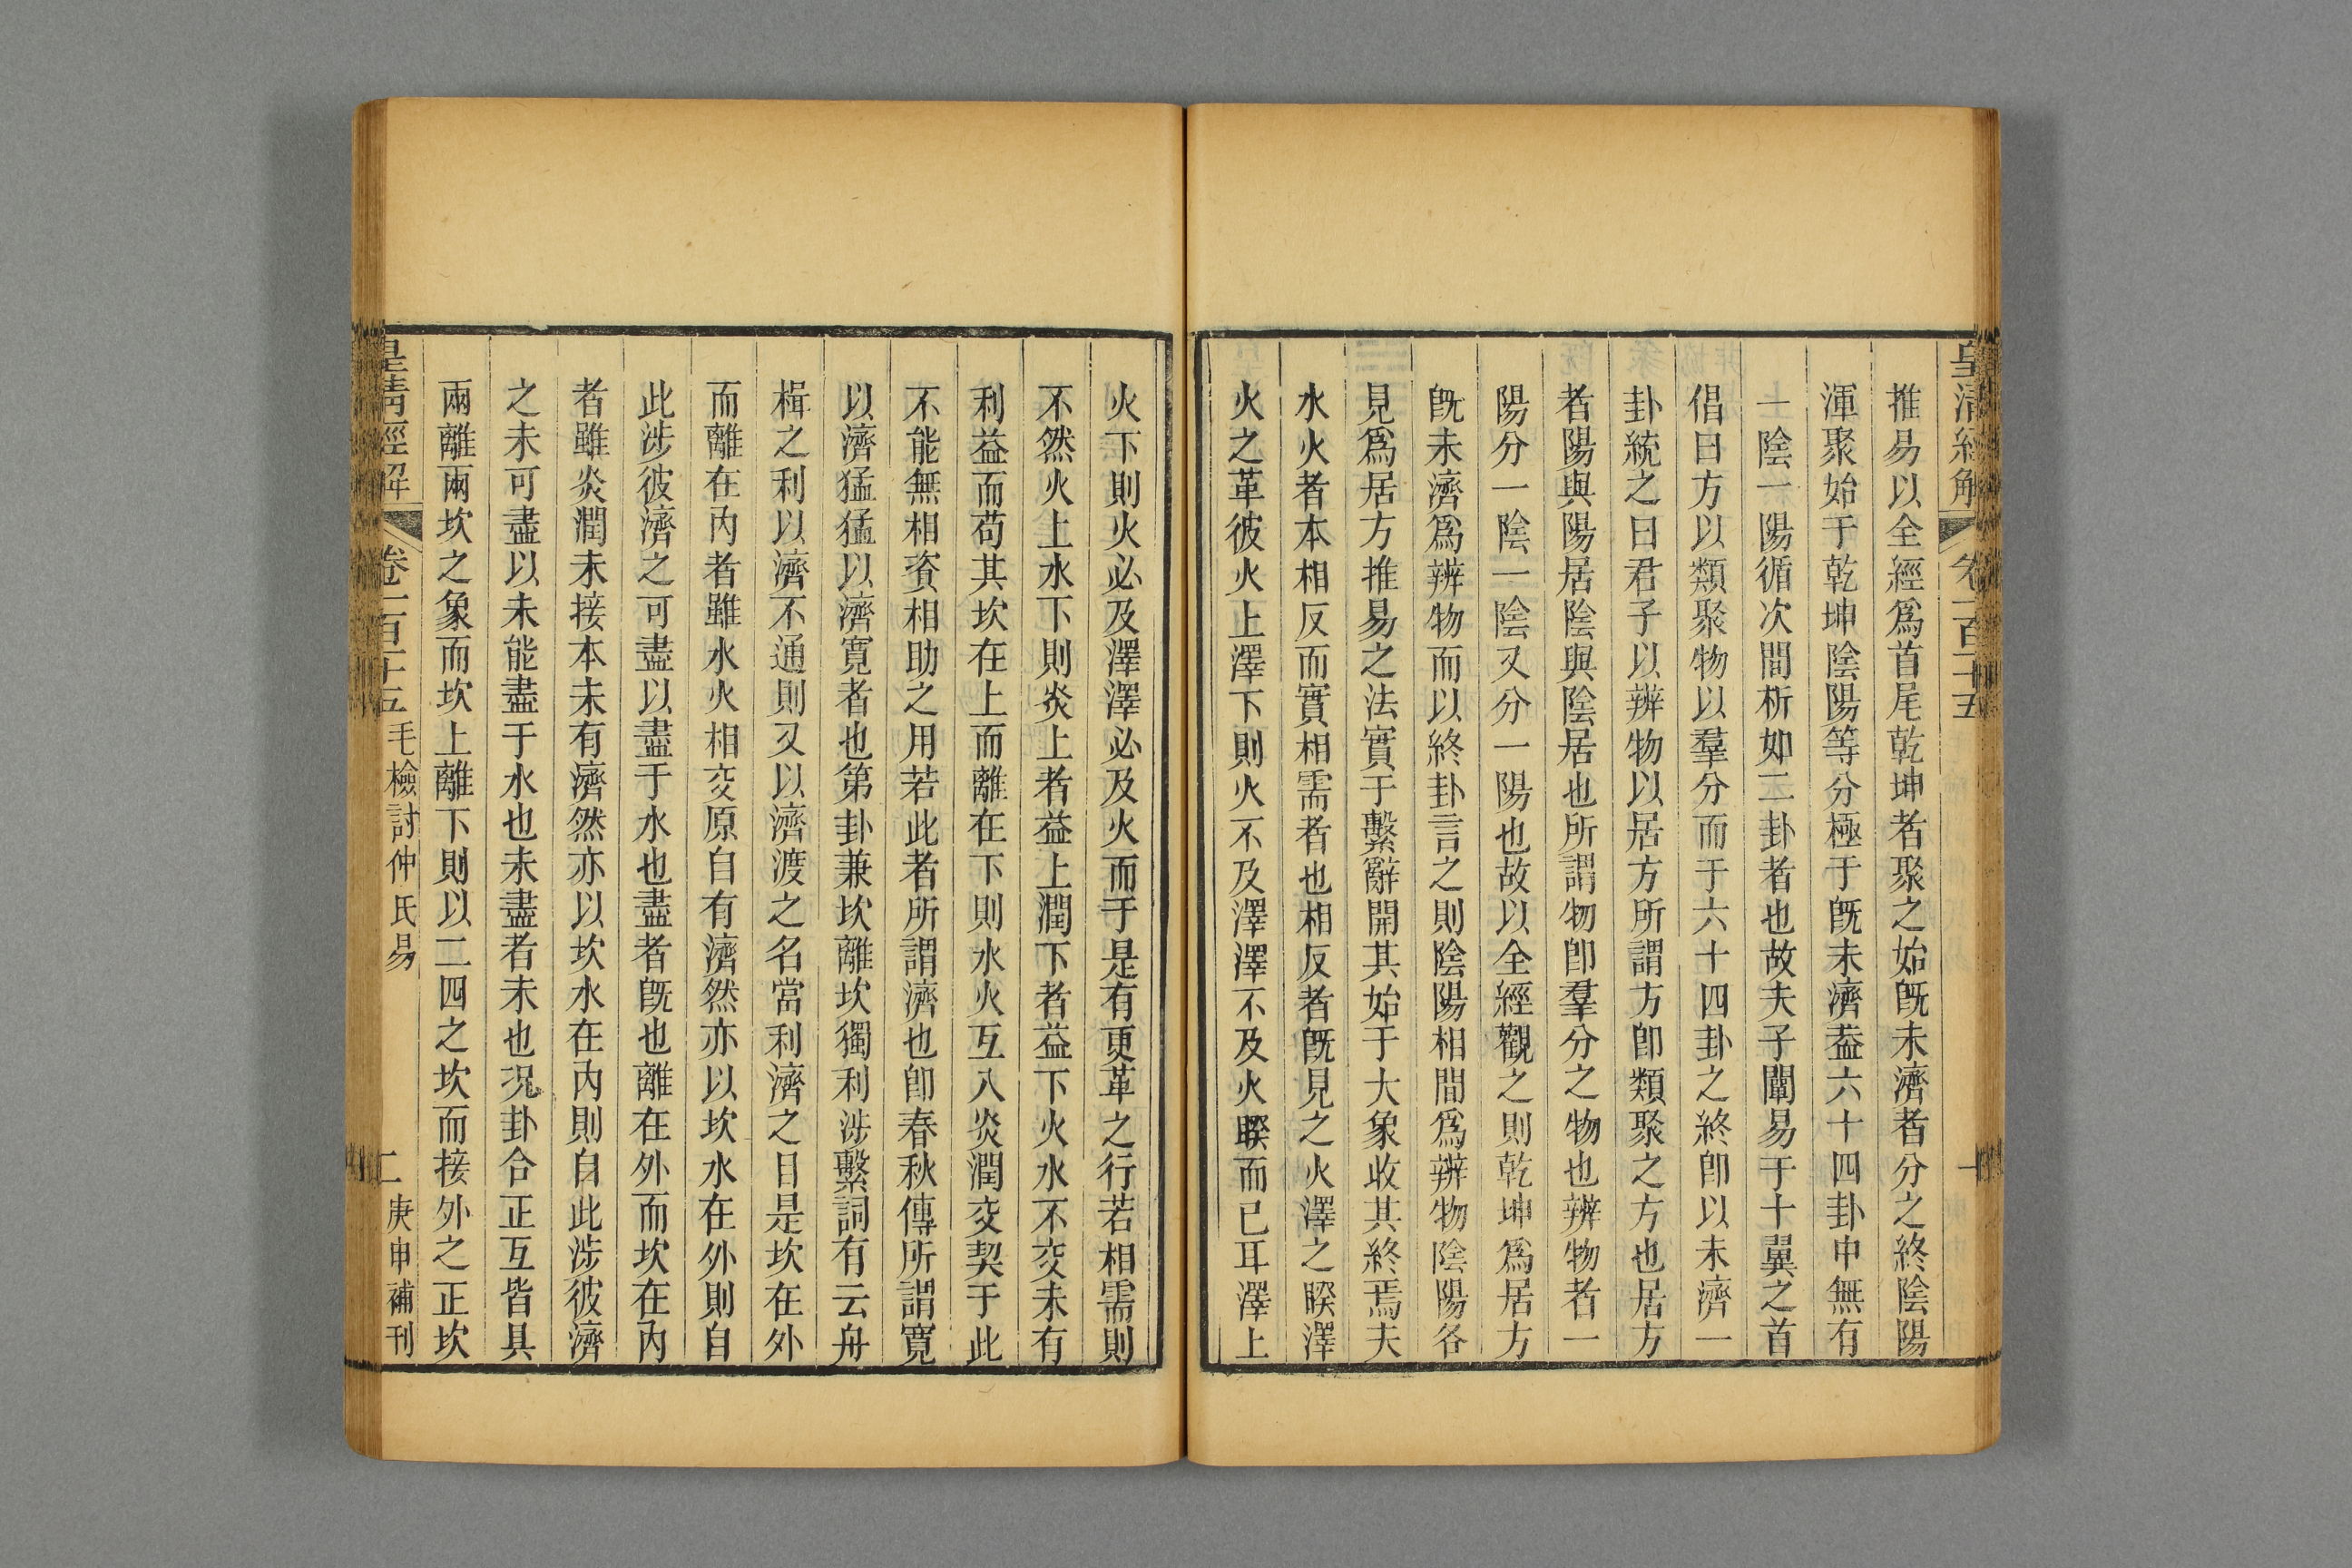 皇清經解 卷一百十五 一
推易以全經爲首尾乾坤者聚之始旣未濟者分之終陰陽
渾聚始于乾坤陰陽等分極于旣未濟葢六十四卦中無有
一陰一陽循次間析如二卦者也故夫子闡易于十翼之首
倡曰方以類聚物以羣分而于六十四卦之終卽以未濟一
卦統之曰君子以辨物以居方所謂方卽類聚之方也居方
者陽與陽居陰與陰居也所謂物卽羣分之物也辨物者一
陽分一陰一陰又分一陽也故以全經觀之則乾坤爲居方
旣未濟爲辨物而以終卦言之則陰陽相間爲辨物陰陽各
見爲居方推易之法實于繫辭開其始于大象收其終焉夫
水火者本相反而實相需者也相反者旣見之火澤之睽澤
火之革彼火上澤下則火不及澤澤不及火睽而已耳澤上
火下則火必及澤澤必及火而于是有更革之行若相需則
不然火上水下則炎上者益上潤下者益下火水不交未有
利益而苟其坎在上而離在下則水火互入炎潤交契于此
不能無相資相助之用若此者所謂濟也卽春秋傳所謂寬
以濟猛猛以濟寬者也第卦兼坎離坎獨利涉繫詞有云舟
楫之利以濟不通則又以濟渡之名當利濟之目是坎在外
而離在內者雖水火相交原自有濟然亦以坎水在外則自
此涉彼濟之可盡以盡于水也盡者旣也離在外而坎在內
者雖炎潤未接本未有濟然亦以坎水在內則自此涉彼濟
之未可盡以未能盡于水也未盡者未也况卦合正互皆具
兩離兩坎之象而坎上離下則以二四之坎而接外之正坎
皇清經解 卷一百十五 毛檢討仲氏易 二 庚申補刊